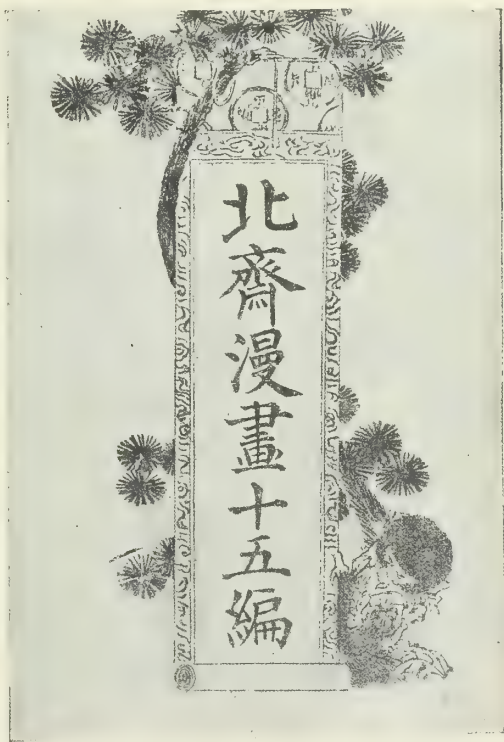 北齋漫畫十五編